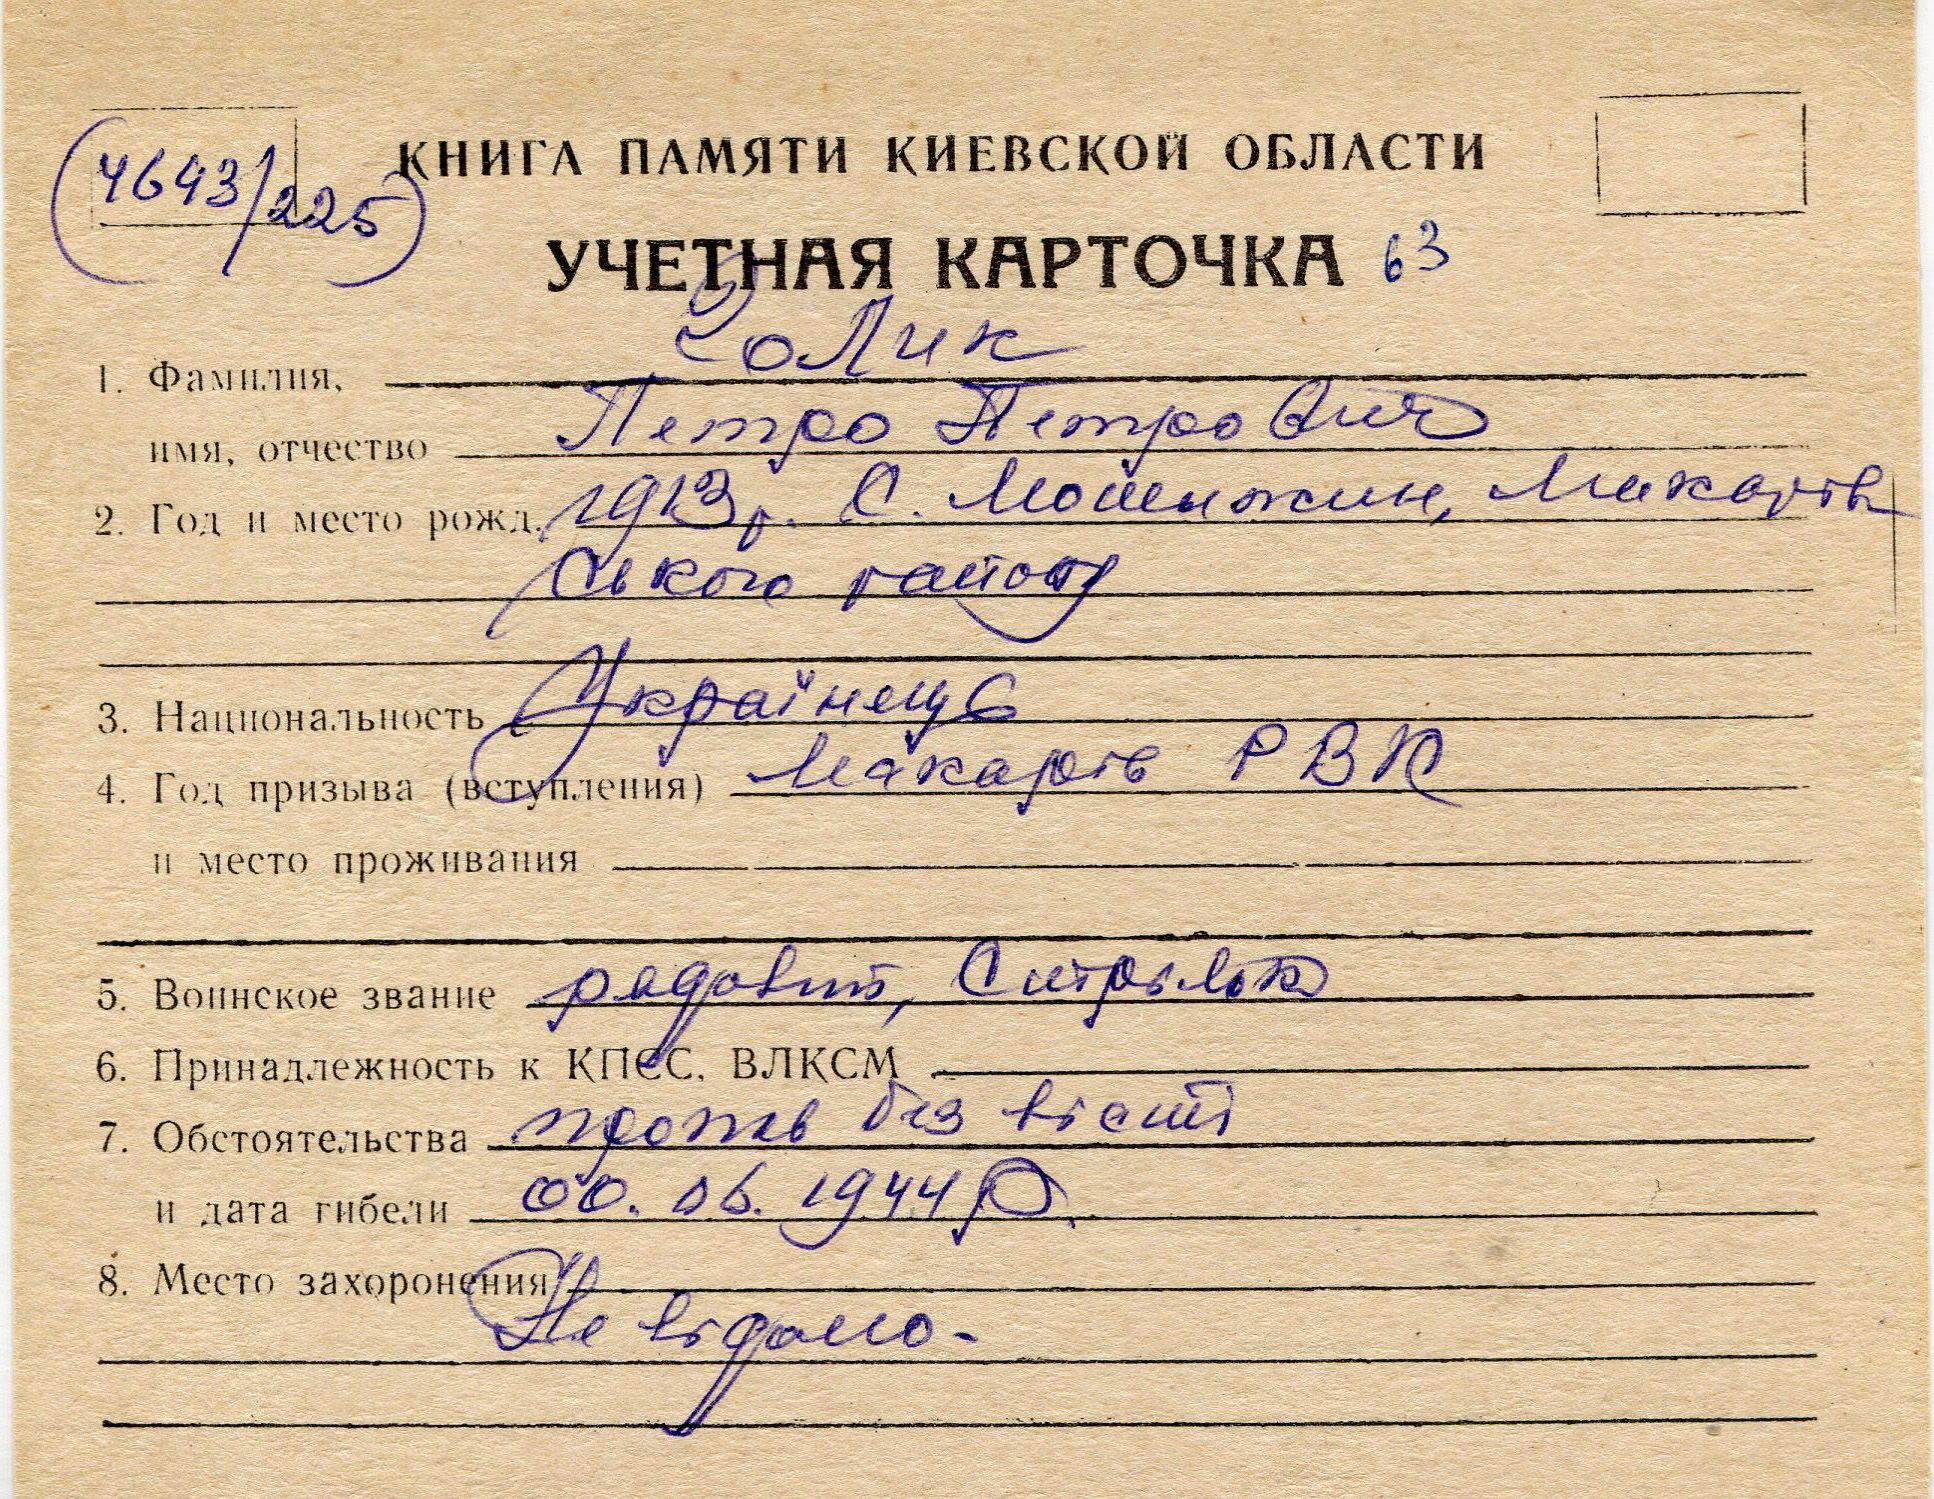 (4643/225)
КНИГА ПАМЯТИ КИЕВСКОЙ ОБЛАСТИ
УЧЕТНАЯ КАРТОЧКА 63
1. Фамилия, Золик
имя, отчество Петро Петрович
2. Год и место рожд. 1913 р. С. Мотижин, Макарів
ського району
3. Национальность Українець
4. Год призыва (вступления) Макарів РВК
и место проживания
5. Воинское звание рядовий, Стрілок
6. Принадлежность к КПСС, ВЛКСМ
7. Обстоятельства пропав без вісті
и дата гибели 00.06.1944 р.
8. Место захоронения
Не відомо.